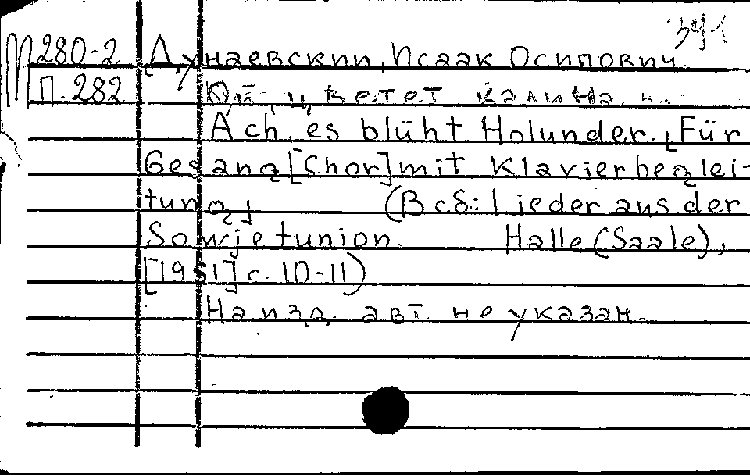 341
М 280-2 Дунаевский, Исаак Осипович.
П. 282 Ой, цветет калина
Ach, es blüht Holunder. [Für
Gesang [Chor] mit Klavierbeglei-
tung] (В сб: Lieder aus der
Sowjetunion. Halle (Saale),
[1951] с. 10-11)
На изд. авт. не указан.